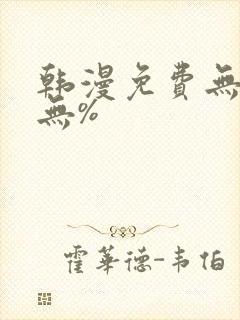 韩漫免費無
無%
霍華德-韦伯